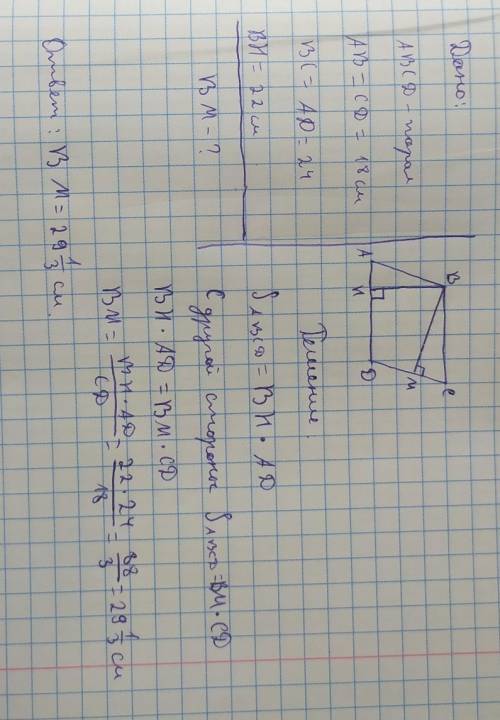 Дано:
ABCD - парал
AB = CD = 18 см
BC = AD = 24
BH = 22 см
BM - ?
A
H
D
M
B
C
Решение:
S ABCD = BH · AD
С другой стороны S ABCD = BM · CD
BH · AD = BM · CD
BM = BH · AD / CD = 22 · 24 / 18 = 88 / 3 = 29 1/3 см
Ответ: BM = 29 1/3 см.